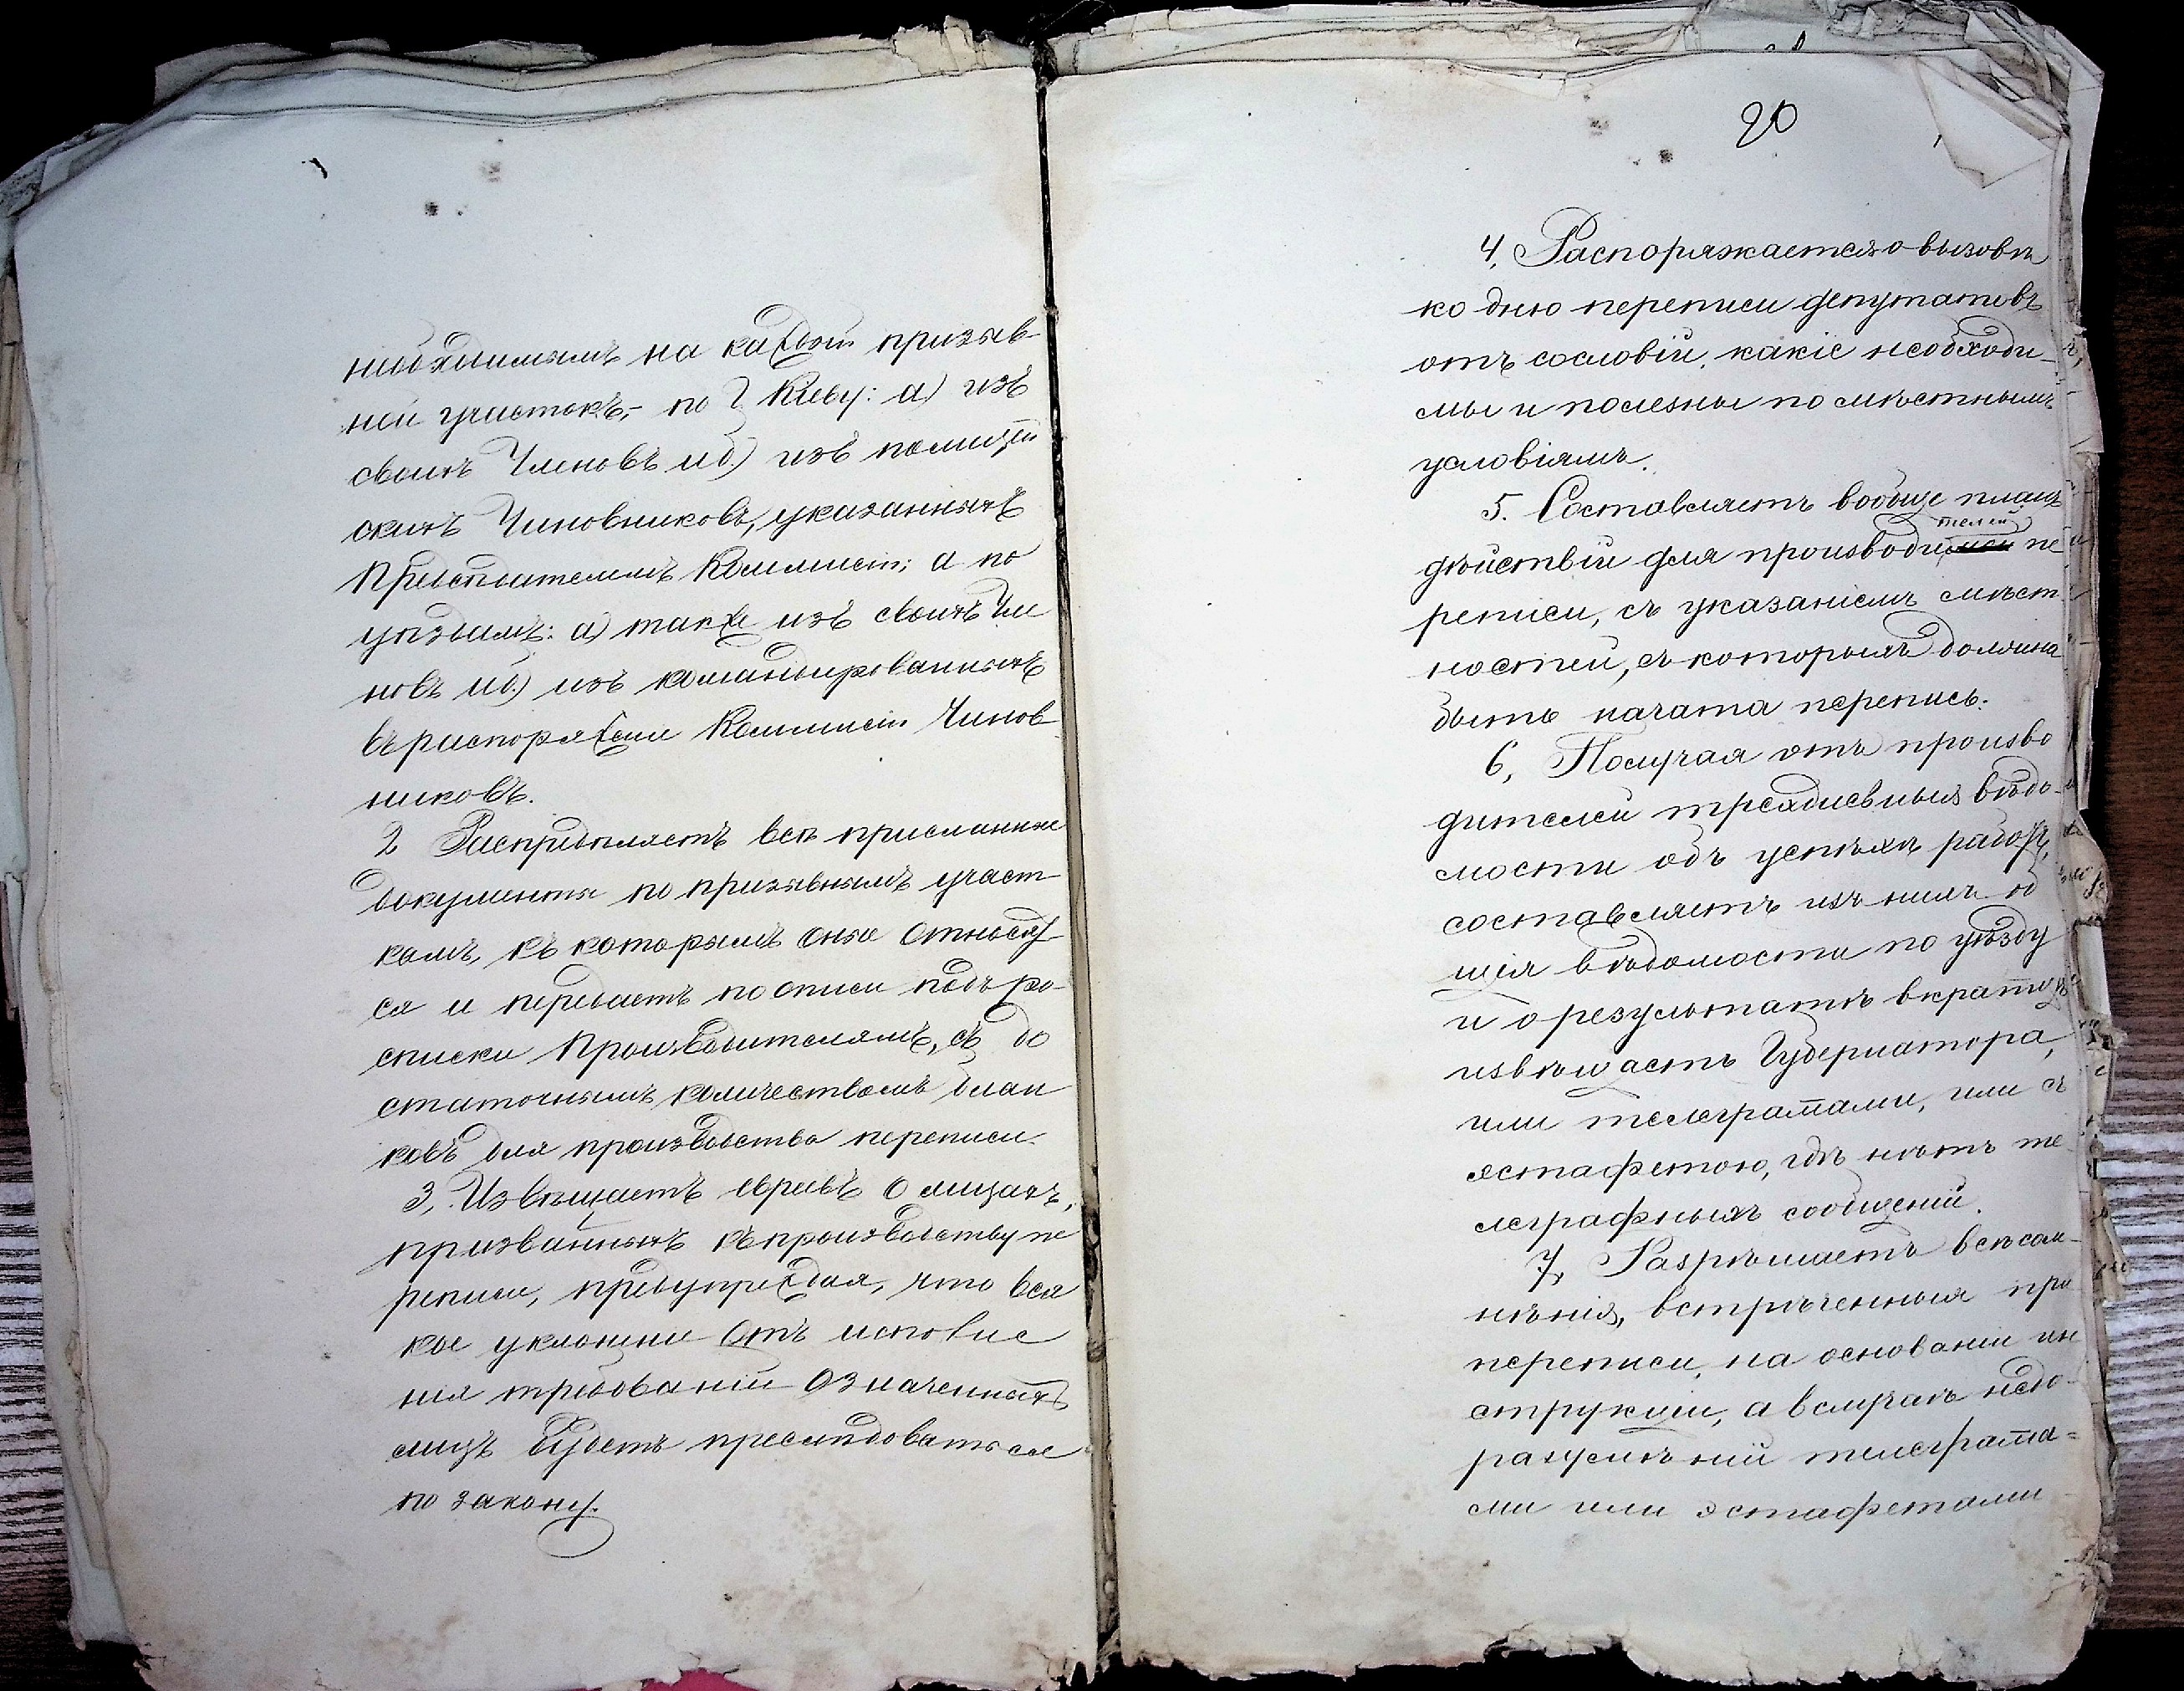 необходимымъ на каждый призыв-
ной участокъ,- по г. Кіеву: а) изъ
своихъ Членовъ и б.) изъ полицей
скихъ Чиновниковъ, указанныхъ
Предсѣдателемъ Коммисіи; а по
уѣздамъ: а) также изъ своихъ Чле
новъ и б.) изъ командированныхъ
въ распоряженіе Коммисіи Чинов-
никовъ.
2 Распредѣляетъ всѣ присланные
документы по призывнымъ участ-
камъ, къ которымъ они относят
ся и передаетъ по описи подъ ро-
списки Производителямъ, съ до
статочнымъ количествомъ блан
ковъ для производства переписи.
3, Извѣщаетъ евреевъ о лицахъ,
призванныхъ къ производству пе
реписи, предупреждая, что вся
кое уклоненіе отъ исполне
нія требованій означенныхъ
лицъ будетъ преслѣдоваться
по закону.
20
4, Распоряжается о вызовѣ
ко дню переписи депутатовъ
отъ сословій, какіе необходи-
мы и полезны по мѣстнымъ
условіямъ.
5. Составляетъ вообще планъ
телей
дѣйствій для производи пе
реписи, съ указаніемъ мѣст
ностей, съ которыхъ должна
быть начата перепись.
6, Получая отъ произво
дителей трехдневныя вѣдо-
мости объ успѣхѣ работъ,
составляетъ изъ нихъ об
щія вѣдомости по уѣзду
и о результатѣ вкратцѣ
извѣщаетъ Губернатора,
или телеграмами, или съ
эстафетою, гдѣ нѣтъ те
леграфныхъ сообщеній.
7, Разрѣшаетъ всѣ сом-
нѣнія, встрѣченныя при
переписи, на основаніи ин
струкціи, а в случаѣ недо-
разумѣній телеграма=
ми или эстафетами